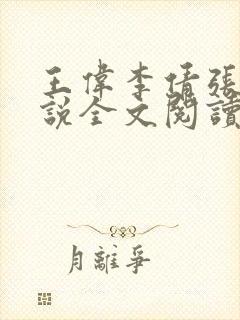 王偉李倩張
說全文閱讀
月離爭